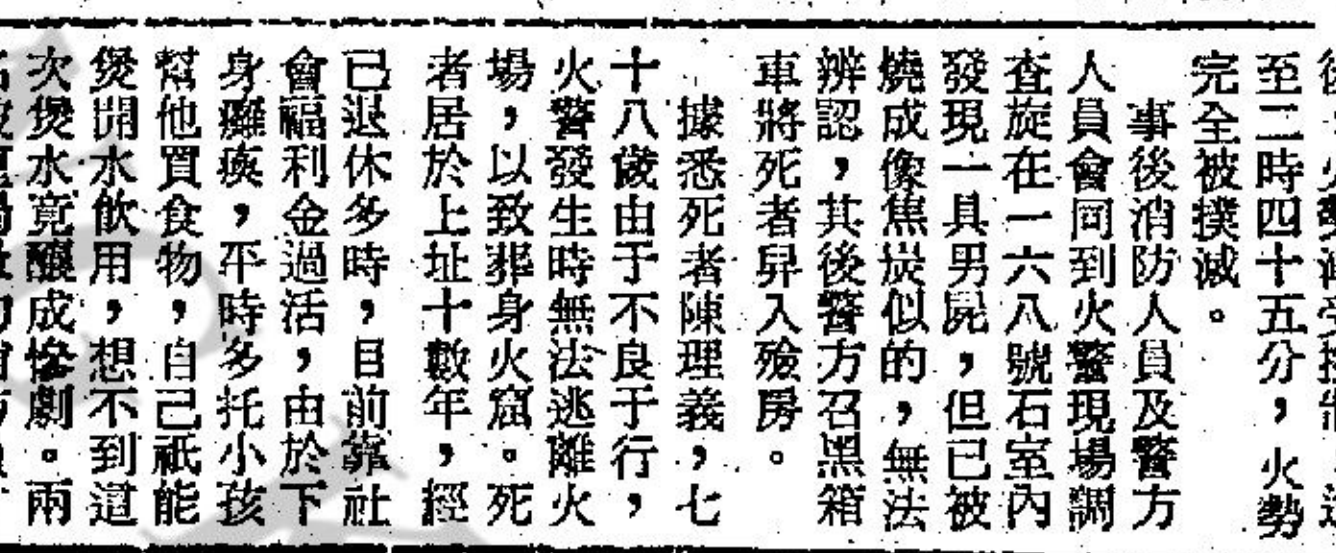 至二時四十五分，火勢
完全被撲滅。
事後消防人員及警方
人員會同到火警現場調
查旋在一六八號石室內
發現一具男屍，但已被
燒成像焦炭似的，無法
辨認，其後警方召黑箱
車將死者舁入殮房。
據悉死者陳理義，七
十八歲由于不良于行，
火警發生時無法逃離火
場，以致葬身火窟。死
者居於上址十數年，經
已退休多時，目前靠社
會福利金過活，由於下
身癱瘓，平時多托小孩
幫他買食物，自己祇能
煲開水飲用，想不到這
次煲水竟釀成慘劇。兩